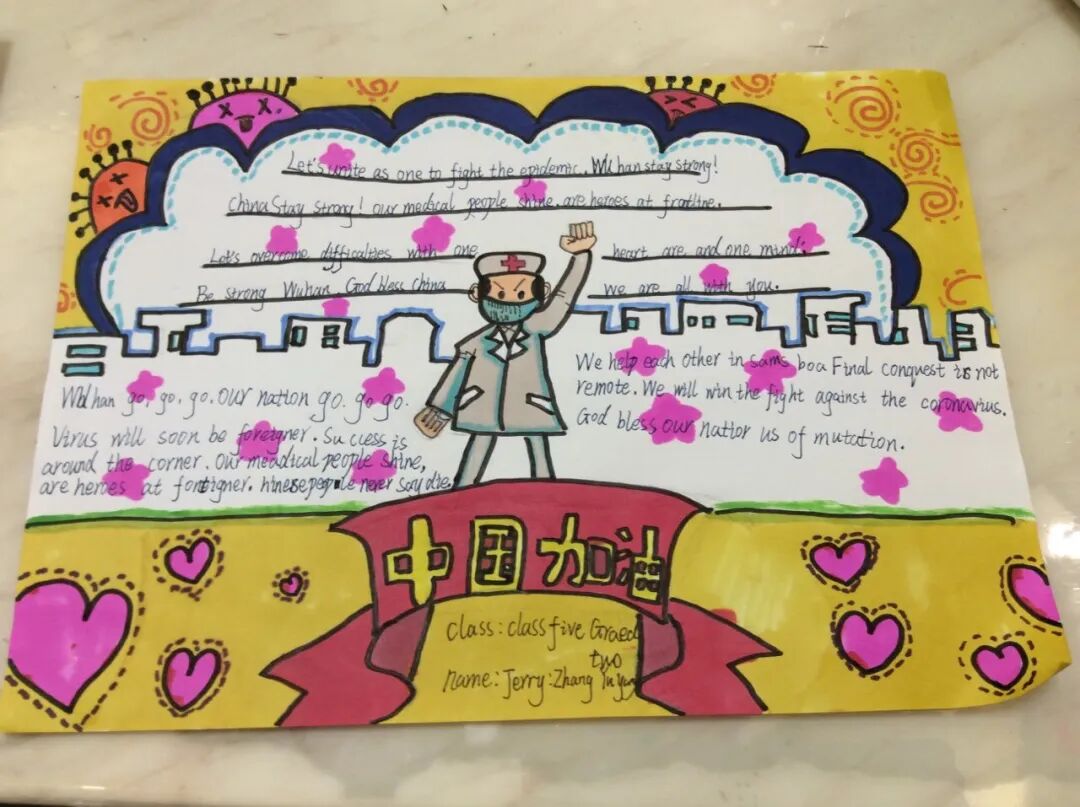 Let's unite as one to fight the epidemic. Wuhan stay strong!
China Stay strong! our medical people shine. are heroes at frontline.
Let's overcome difficulties with one heart are and one mind:
Be strong Wuhan God bless china we are all with you.
Wuhan go, go, go. our nation go. go go.
Virus will soon be foreigner. Success is
around the corner. Our meadical people shine,
are heroes at never say die.
We help each other in sams boa Final conquest is not
remote. We will win the fight against the coronavirus.
God bless our natior us of mutation.
中国加油
class: class five Graed
two
name: Jerry: Zhang